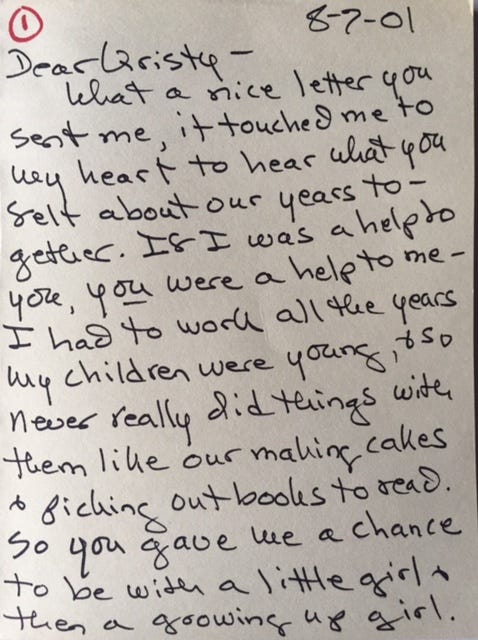 1
8-7-01
Dear Kristy -
What a nice letter you
sent me, it touched me to
my heart to hear what you
felt about our years to-
gether. If I was a help to
you, you were a help to me -
I had to work all the years
my children were young, & so
never really did things with
them like our making cakes
& picking out books to read.
So you gave me a chance
to be with a little girl &
then a growing up girl.